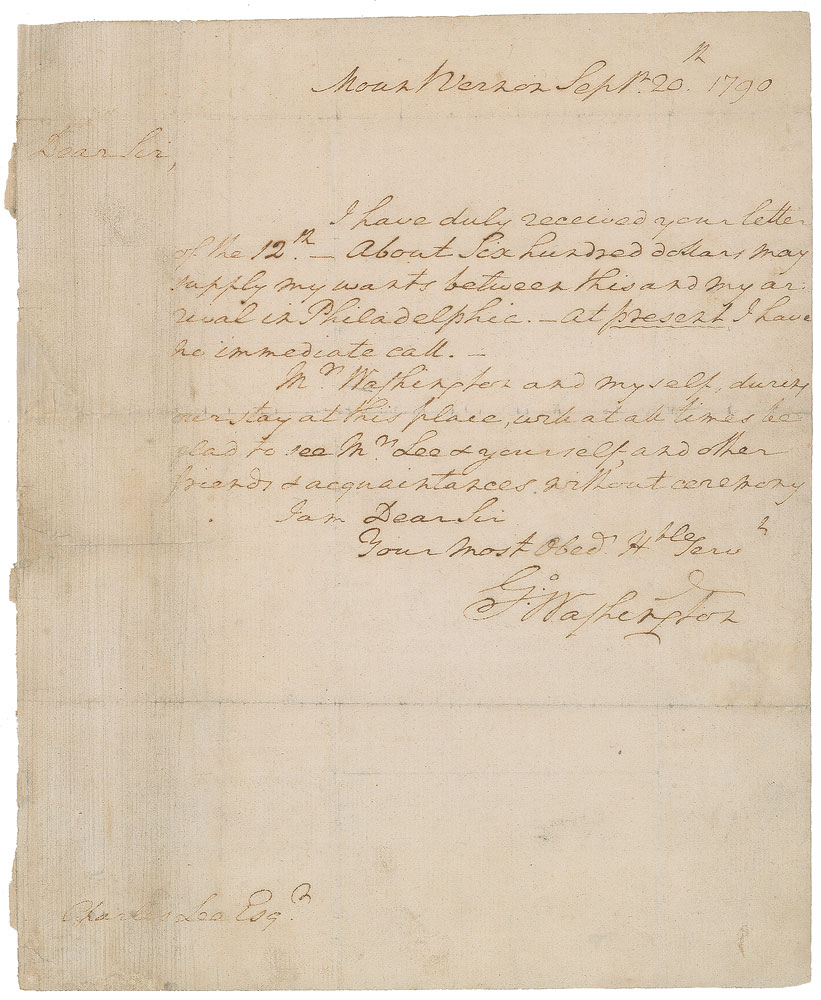 Mount Vernon Sept. 20th 1790
Dear Sir,
I have duly received your letter
of the 12th. — About Six hundred dollars may
supply my wants between this and my ar-
rival in Philadelphia. — At present I have
no immediate call. —
Mrs Washington and myself, during
our stay at this place, will at all times be
glad to see Mrs Lee & yourself, and other
friends & acquaintances without ceremony
I am Dear Sir
Your Most Obedt Hble Servt
Go: Washington
Charles Lee Esqr